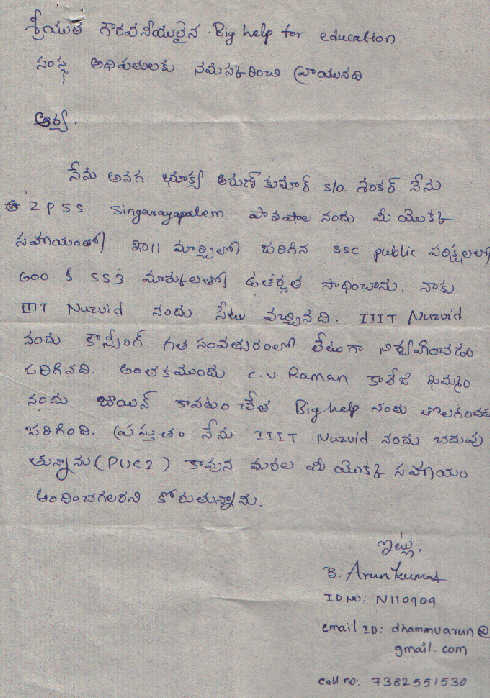 శ్రీయుత గౌరవనీయులైన Big help for education
సంస్థ అధిపతులకు నమస్కరించి వ్రాయునది
ఆర్య.
నేను అనగా భూక్య అరుణ్ కుమార్ S/o. శంకర్ నేను
ZPSS Singarayapalem పాఠశాల నందు మీ యొక్క
సహాయంతో 2011 మార్చిలో జరిగిన SSC public పరీక్షలలో
600 కి 553 మార్కులతో ఉత్తీర్ణత సాధించాను. నాకు
IIIT Nuzvid నందు సీటు వచ్చినది. IIIT Nuzvid
నందు కౌన్సిలింగ్ గత సంవత్సరంలో లేటుగా నిర్వహించడం
జరిగినది. అంతకముందు C.V Raman కాలేజి ఖమ్మం
నందు జాయిన్ కావటం చేత Big help నందు తొలగించడం
జరిగింది. ప్రస్తుతం నేను IIIT Nuzvid నందు చదువు
తున్నాను (PUC2) కావున మరల మీ యొక్క సహాయం
అందించగలరని కోరుతున్నాను.
ఇట్లు.
B. Arun kumar
ID NO: N110909
email ID: dhammuarun@
gmail.com
Call no: 7382551530